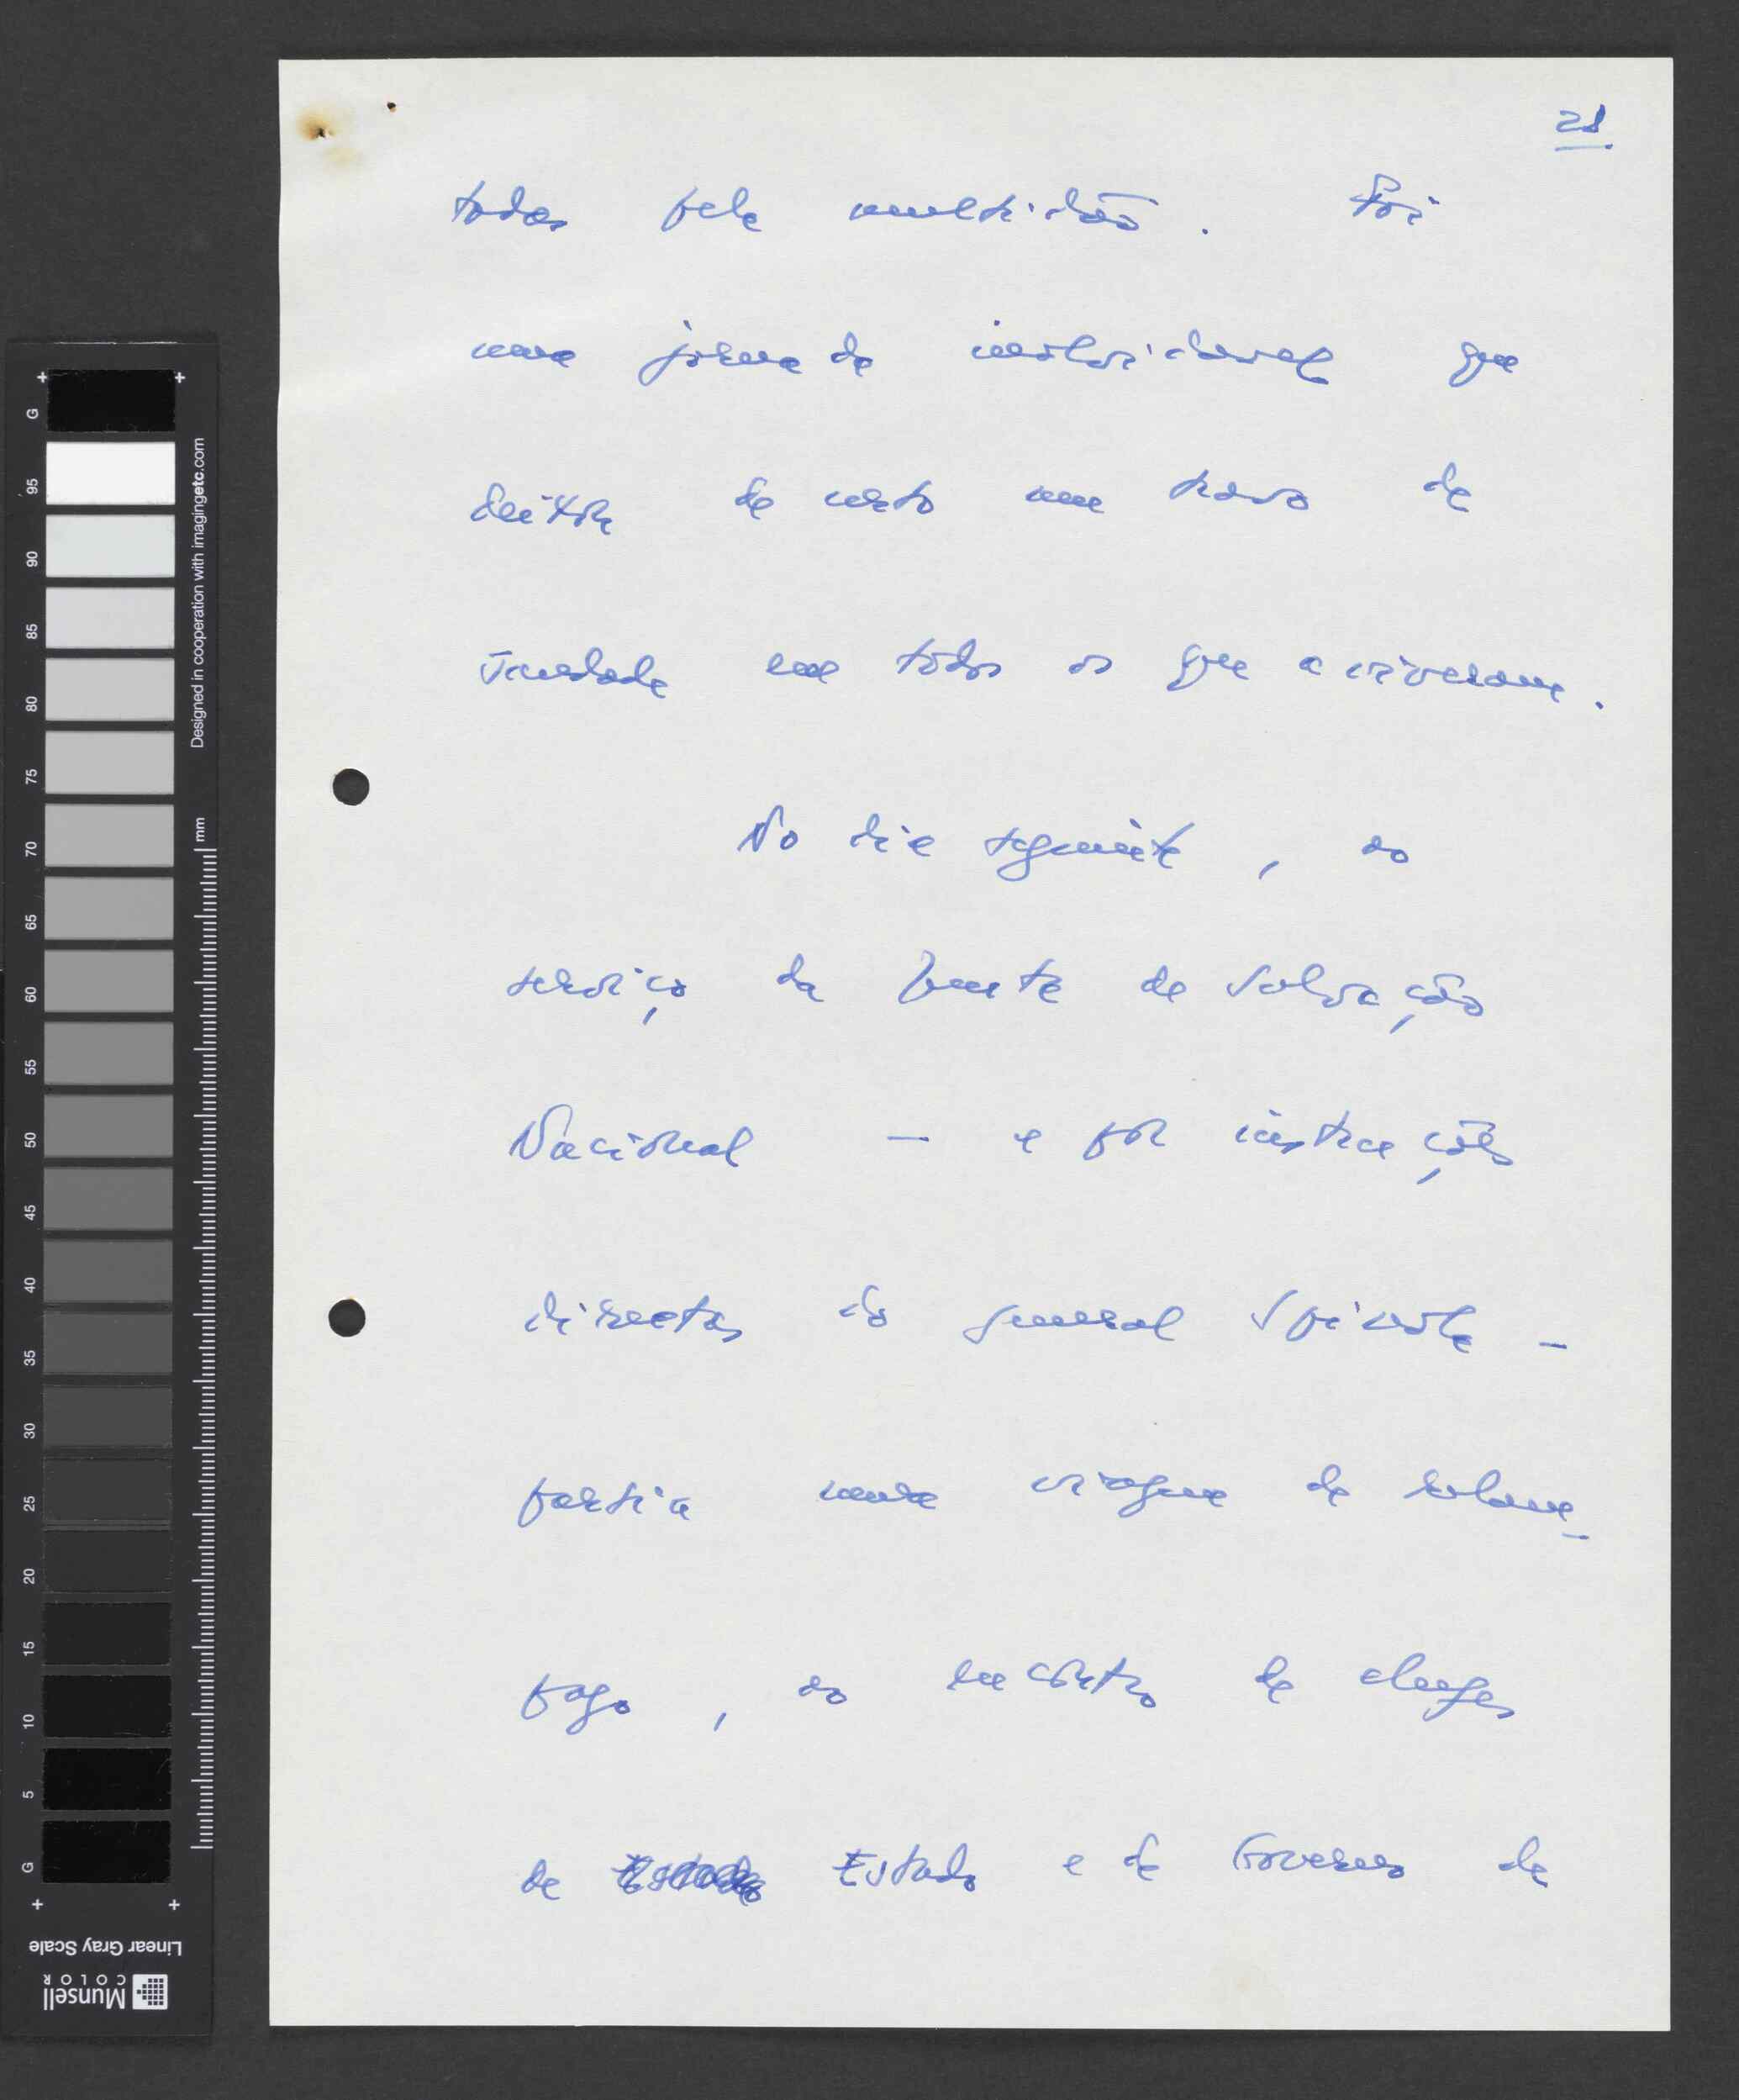 21
todos pela multidão. Foi
uma jornada inolvidável que
deitou de certo um travo de
saudade em todos os que a viveram.
No dia seguinte, ao
serviço da Junta de Salvação
Nacional — e por instruções
directas do general Spínola —
partia numa viagem de relam-
pago, ao encontro de chefes
de Estado e de Governo de
G 95 90 85 80 75 70 65 60 55 50 45 40 35 30 25 20 15 10 5 G
Designed in cooperation with imagingetc.com
mm
Linear Gray Scale
Munsell
COLOR